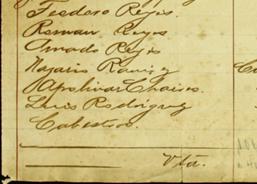 Teodoro Reyes.
Roman Reyes
Amado Reyes
Nazario Ramirez
Chaires.
Luis Rodriguez
Cabestros.
Vta.